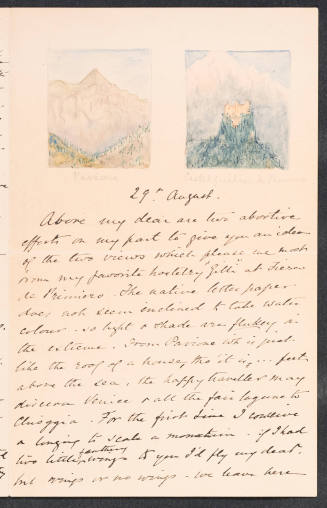 Pavione
29th August.
Above my dear are two abortive
efforts on my part to give you an idea
of the two views which please me most
from my favorite hostelry Gilli at Fiera
de Primiero. The native letter paper
does not seem inclined to take water
colour. so light & shade are flukey in
the extreme. From Pavione wh is just
like the roof of a house, tho' it is ... feet
above the sea, the happy traveller may
discern Venice & all the fair lagune to
Chioggia. For the first time I conceive
a longing to scale a mountain. if I had
two little feathery wings to you I'd fly my dear.
but wings or no wings - we leave here